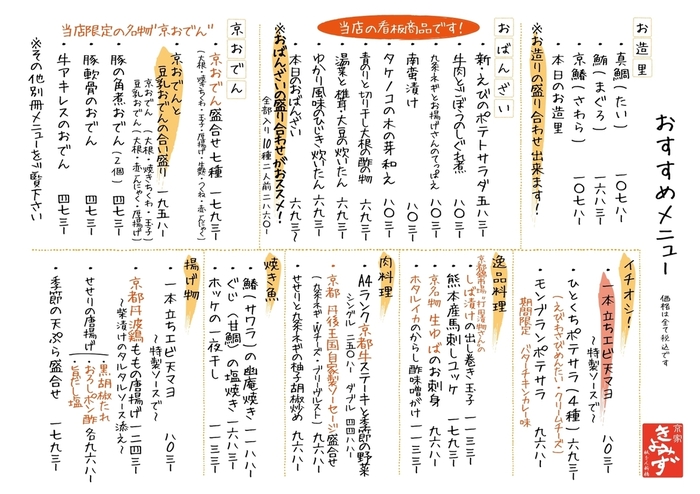 おすすめメニュー
価格は全て税込です
お造里
・真鯛(たい) 一〇七八
・鮪(まぐろ) 一六八三
・京鰆(さわら) 一〇七八
・本日のお造里
※お造りの盛り合わせ出来ます!
当店の看板商品です!
おばんざい
・新・えびのポテトサラダ 五八三
・牛肉とごぼうのしぐれ煮 八〇三
・九条ネギとお揚げさんのてっぱえ 八〇三
・南蛮漬け 八〇三
・タケノコの木の芽和え 八〇三
・青のりと切り干し大根の酢の物 六九三
・湯葉と椎茸・大豆の炊いたん 六九三
・ゆかり風味のひじき炊いたん 六九三
・本日のおばんざい 六九三〜
※おばんざいの盛り合わせがおススメ!
全部入り10種二人前 二八六〇
当店限定の名物"京おでん"
京おでん
・京おでん盛合せ七種 一七九三
(大根・焼きちくわ・玉子・厚揚げ・生麩・つくね・赤こんにゃく)
・京おでんと
豆乳おでんの合い盛り 一九五八
京おでん(大根・焼きちくわ・玉子)
豆乳おでん(大根・赤こんにゃく・厚揚げ)
・豚の角煮おでん(2個) 四七三
・豚軟骨のおでん 四七三
・牛アキレスのおでん 四七三
※その他別冊メニューをご覧下さい
イチオシ!
・一本立ちエビ天マヨ
〜特製ソースで〜 八〇三
・ひとくちポテサラ(4種) 六九三
(えび・わさび・めんたい・クリームチーズ)
・モンブランポテサラ 九六八
期間限定 バターチキンカレー味
逸品料理
京都錦市場"打田漬物さんの
・しば漬けの出し巻き玉子 一一三三
・熊本産馬刺しユッケ 一七九三
・京名物 生ゆばのお刺身 九六八
・ホタルイカのからし酢味噌がけ 一一三三
肉料理
・A4ランク京都牛ステーキと季節の野菜
シングル 二五〇八 ダブル 四四八八
・京都 丹後王国自家製ソーセージ盛合せ
(九条ネギ・Wチーズ・ブリッヴルスト) 九六八
・せせりと九条ネギの柚子胡椒炒め 九六八
焼き魚
・鰆(サワラ)の幽庵焼き 一一八八
・ぐじ(甘鯛)の塩焼き 一六八三
・ホッケの一夜干し 一一三三
揚げ物
・一本立ちエビ天マヨ
〜特製ソースで〜 八〇三
・京都丹波鶏ももの唐揚げ 一二四三
〜柴漬けのタルタルソース添え〜
・せせりの唐揚げ 黒胡椒たれ
おろしポン酢 各九六八
旨だし塩
・季節の天ぷら盛合せ 一七九三
京家
きよみず